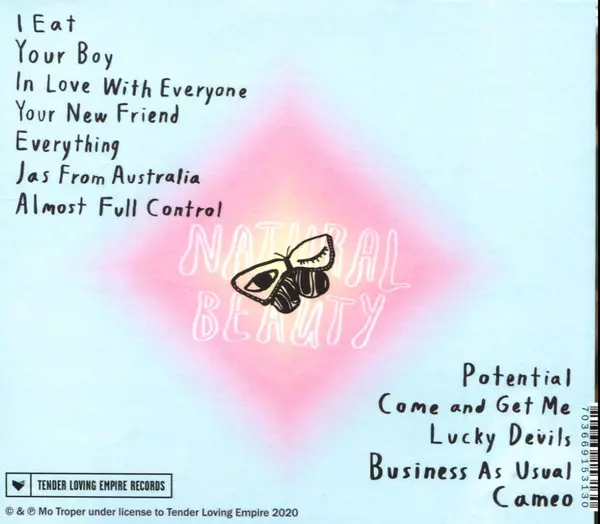 I Eat
Your Boy
In Love With Everyone
Your New Friend
Everything
Jas From Australia
Almost Full Control
NATURAL
BEAUTY
Potential
Come and Get Me
Lucky Devils
Business As Usual
Cameo
703669153130
TENDER LOVING EMPIRE RECORDS
© & ℗ Mo Troper under license to Tender Loving Empire 2020